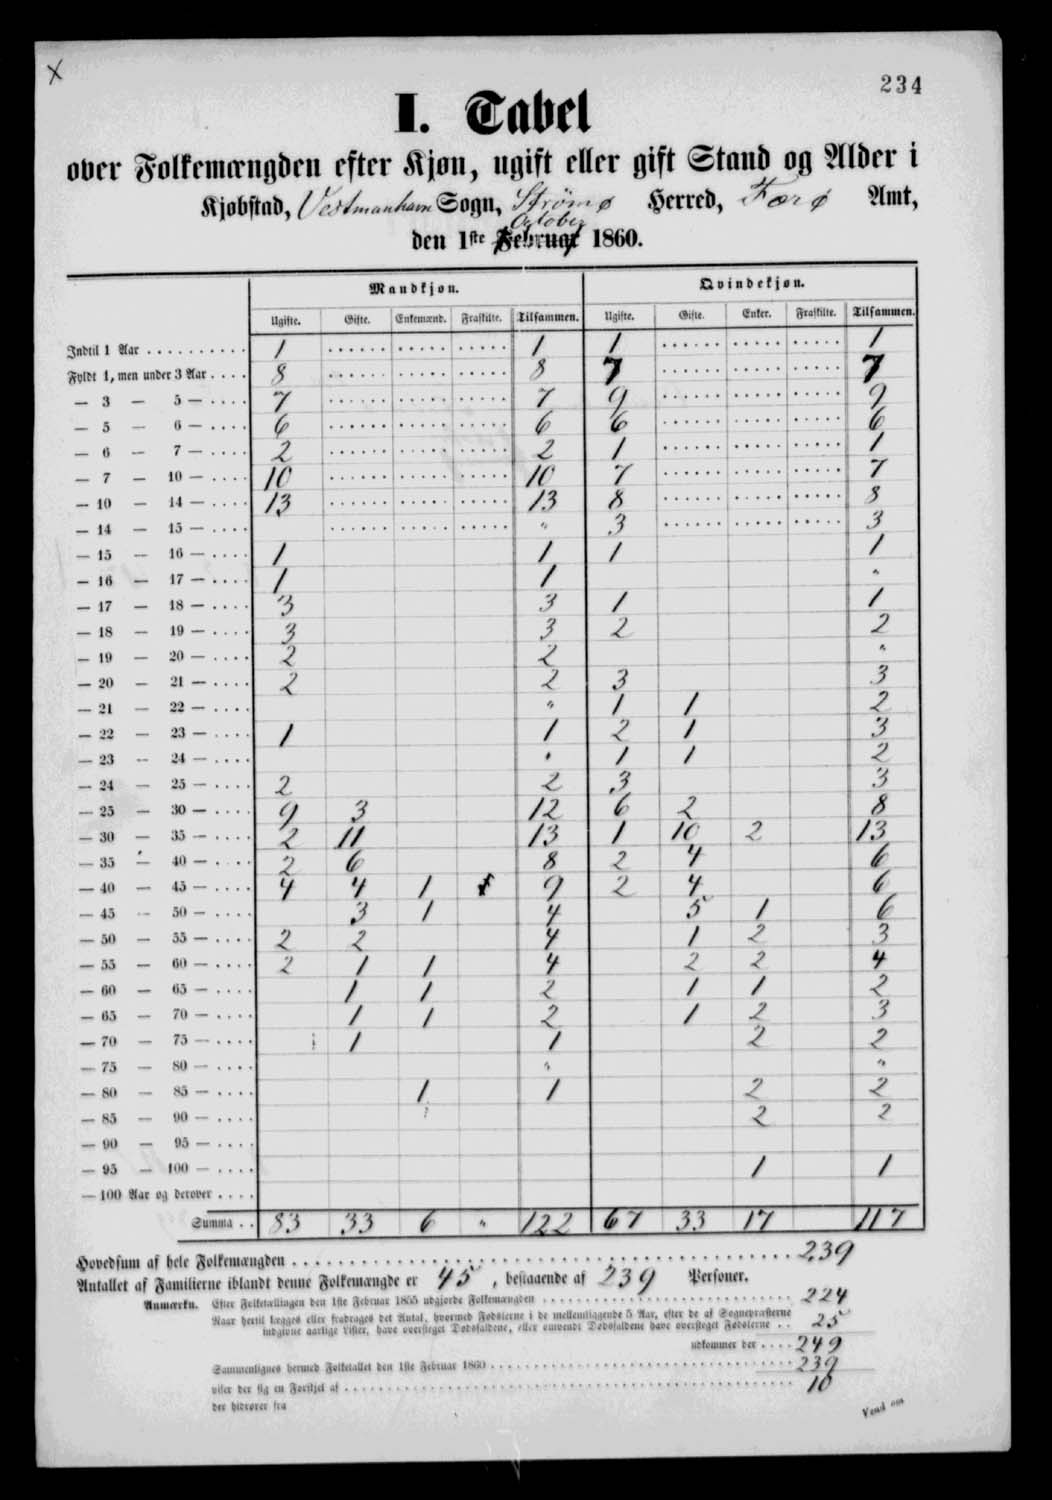 X
234
I. Tabel
over Folkemængden efter Kjøn, ugift eller gift Stand og Alder i
Kjøbstad, Vestmanhavn Sogn, Strömø Herred, Færø Amt,
October
den 1ste Februar 1860.
Mandkjøn. Qvindekjøn.
Ugifte. Gifte. Enkemænd. Fraskilte. Tilsammen. Ugifte. Gifte. Enker. Fraskilte. Tilsammen.
Indtil 1 Aar . . . . . . . . . . 1 . . . . . . . . . . . . . . . . 1 1 . . . . . . . . . . . . . . . . 1
Fyldt 1, men under 3 Aar . . . . 8 . . . . . . . . . . . . . . . . 8 7 . . . . . . . . . . . . . . . . 7
— 3 — 5 — . . . . 7 . . . . . . . . . . . . . . . . 7 9 . . . . . . . . . . . . . . . . 9
— 5 — 6 — . . . . 6 . . . . . . . . . . . . . . . . 6 6 . . . . . . . . . . . . . . . . 6
— 6 — 7 — . . . . 2 . . . . . . . . . . . . . . . . 2 1 . . . . . . . . . . . . . . . . 1
— 7 — 10 — . . . . 10 . . . . . . . . . . . . . . . . 10 7 . . . . . . . . . . . . . . . . 7
— 10 — 14 — . . . . 13 . . . . . . . . . . . . . . . . 13 8 . . . . . . . . . . . . . . . . 8
— 14 — 15 — . . . . . . . . . . . . . . . . . . . . " 3 . . . . . . . . . . . . . . . . 3
— 15 — 16 — . . . . 1 1 1 1
— 16 — 17 — . . . . 1 1 "
— 17 — 18 — . . . . 3 3 1 1
— 18 — 19 — . . . . 3 3 2 2
— 19 — 20 — . . . . 2 2 "
— 20 — 21 — . . . . 2 2 3 3
— 21 — 22 — . . . . " 1 1 2
— 22 — 23 — . . . . 1 1 2 1 3
— 23 — 24 — . . . . " 1 1 2
— 24 — 25 — . . . . 2 2 3 3
— 25 — 30 — . . . . 9 3 12 6 2 8
— 30 — 35 — . . . . 2 11 13 1 10 2 13
— 35 — 40 — . . . . 2 6 8 2 4 6
— 40 — 45 — . . . . 4 4 1 9 2 4 6
— 45 — 50 — . . . . 3 1 4 5 1 6
— 50 — 55 — . . . . 2 2 4 1 2 3
— 55 — 60 — . . . . 2 1 1 4 2 2 4
— 60 — 65 — . . . . 1 1 2 1 1 2
— 65 — 70 — . . . . 1 1 2 1 2 3
— 70 — 75 — . . . . 1 1 2 2
— 75 — 80 — . . . . " "
— 80 — 85 — . . . . 1 1 2 2
— 85 — 90 — . . . . 2 2
— 90 — 95 — . . . .
— 95 — 100 — . . . . 1 1
— 100 Aar og derover . . . .
Summa . . 83 33 6 " 122 67 33 17 117
Hovedsum af hele Folkemængden . . . . . . . . . . 239
Antallet af Familierne iblandt denne Folkemængde er 45, bestaaende af 239 Personer.
Anmærkn. Efter Folketællingen den 1ste Februar 1855 udgjorde Folkemængden . . . . . . . . . . 224
Naar hertil lægges eller fradrages det Antal, hvormed Fødslerne i de mellemliggende 5 Aar, efter de af Sognepræsterne
indgivne aarlige Lister, have oversteget Dødsfaldene, eller omvendt Dødsfaldene have oversteget Fødslerne . . 25
udkommer der . . . . 249
Sammenlignes hermed Folketallet den 1ste Februar 1860 . . . . . . . . . . 239
viser der sig en Forskjel af . . . . . . . . . . 10
der hidrører fra
Vend om